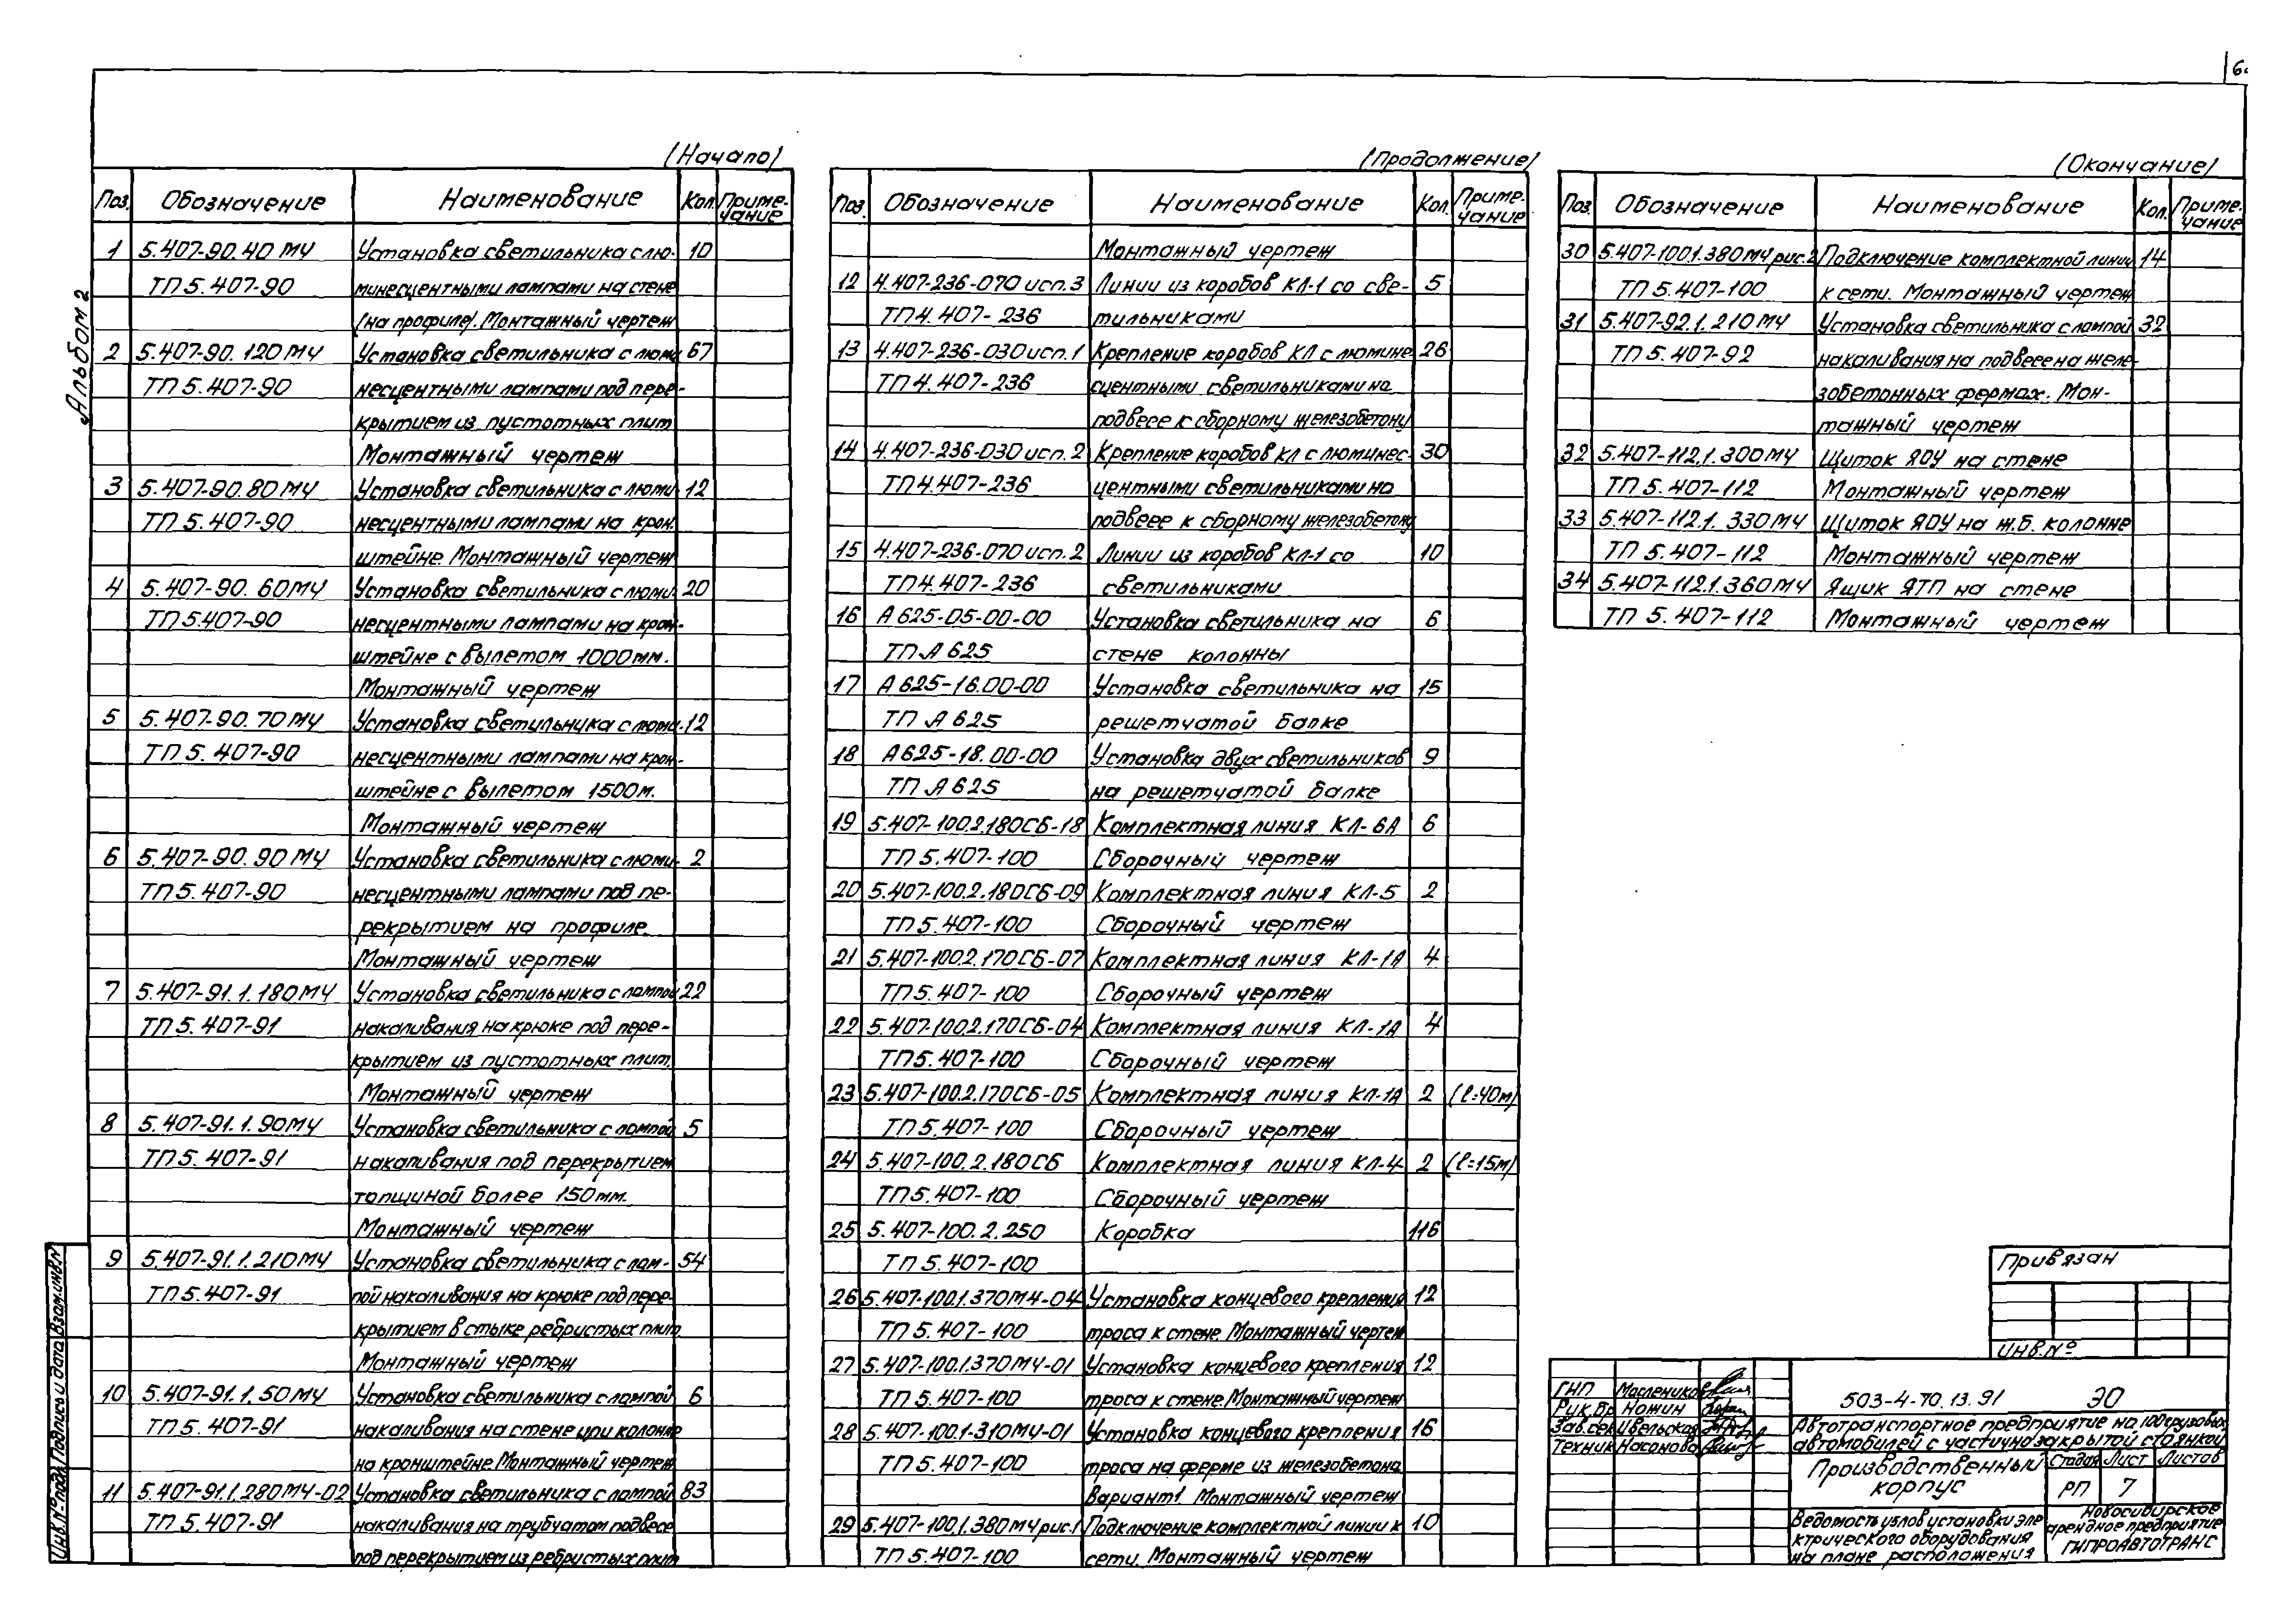 6
Альбом 2
(Начало)
Поз. Обозначение Наименование Кол. Приме-
чание
1 5.407-90.40 МЧ Установка светильника с лю- 10
ТП 5.407-90 минесцентными лампами на стене
(на профиле). Монтажный чертеж
2 5.407-90.120 МЧ Установка светильника с люми- 67
ТП 5.407-90 несцентными лампами под пере-
крытием из пустотных плит
Монтажный чертеж
3 5.407-90.80 МЧ Установка светильника с люми- 12
ТП 5.407-90 несцентными лампами на крон-
штейне. Монтажный чертеж
4 5.407-90.60 МЧ Установка светильника с люми- 20
ТП 5.407-90 несцентными лампами на крон-
штейне с вылетом 1000 мм.
Монтажный чертеж
5 5.407-90.70 МЧ Установка светильника с люми- 12
ТП 5.407-90 несцентными лампами на крон-
штейне с вылетом 1500м.
Монтажный чертеж
6 5.407-90.90 МЧ Установка светильника с люми- 2
ТП 5.407-90 несцентными лампами под пе-
рекрытием на профиле.
Монтажный чертеж
7 5.407-91.1.180 МЧ Установка светильника с лампой 22
ТП 5.407-91 накаливания на крюке под пере-
крытием из пустотных плит.
Монтажный чертеж
8 5.407-91.1.90 МЧ Установка светильника с лампой 5
ТП 5.407-91 накаливания под перекрытием
толщиной более 150 мм.
Монтажный чертеж
9 5.407-91.1.210 МЧ Установка светильника с лам- 54
ТП 5.407-91 пой накаливания на крюке под пере-
крытием в стыке ребристых плит
Монтажный чертеж
10 5.407-91.1.50 МЧ Установка светильника с лампой 6
ТП 5.407-91 накаливания на стене или колонне
на кронштейне. Монтажный чертеж
11 5.407-91.1.280 МЧ-02 Установка светильника с лампой 83
ТП 5.407-91 накаливания на трубчатом подвесе
под перекрытием из ребристых плит
(Продолжение)
Поз. Обозначение Наименование Кол. Приме-
чание
Монтажный чертеж
12 4.407-236-070 исп. 3 Линии из коробов КЛ-1 со све- 5
ТП 4.407-236 тильниками
13 4.407-236-030 исп. 1 Крепление коробов КЛ с люмине- 26
ТП 4.407-236 сцентными светильниками на
подвесе к сборному железобетону
14 4.407-236-030 исп. 2 Крепление коробов КЛ с люминес- 30
ТП 4.407-236 центными светильниками на
подвесе к сборному железобетону
15 4.407-236-070 исп. 2 Линии из коробов КЛ-1 со 10
ТП 4.407-236 светильниками
16 А 625-05-00-00 Установка светильника на 6
ТП А 625 стене колонны
17 А 625-16.00-00 Установка светильника на 15
ТП А 625 решетчатой балке
18 А 625-18.00-00 Установка двух светильников 9
ТП А 625 на решетчатой балке
19 5.407-100.2.180СБ-18 Комплектная линия КЛ-6А 6
ТП 5.407-100 Сборочный чертеж
20 5.407-100.2.180СБ-09 Комплектная линия КЛ-5 2
ТП 5.407-100 Сборочный чертеж
21 5.407-100.2.170СБ-07 Комплектная линия КЛ-1А 4
ТП 5.407-100 Сборочный чертеж
22 5.407-100.2.170СБ-04 Комплектная линия КЛ-1А 4
ТП 5.407-100 Сборочный чертеж
23 5.407-100.2.170СБ-05 Комплектная линия КЛ-1А 2 (ℓ=40м)
ТП 5.407-100 Сборочный чертеж
24 5.407-100.2.180СБ Комплектная линия КЛ-4 2 (ℓ=15м)
ТП 5.407-100 Сборочный чертеж
25 5.407-100.2.250 Коробка 116
ТП 5.407-100
26 5.407-100.1.370МЧ-04 Установка концевого крепления 12
ТП 5.407-100 троса к стене. Монтажный чертеж
27 5.407-100.1.370МЧ-01 Установка концевого крепления 12
ТП 5.407-100 троса к стене. Монтажный чертеж
28 5.407-100.1.310МЧ-01 Установка концевого крепления 16
ТП 5.407-100 троса на ферме из железобетона
Вариант 1. Монтажный чертеж
29 5.407-100.1.380МЧ рис.1 Подключение комплектной линии к 10
ТП 5.407-100 сети. Монтажный чертеж
(Окончание)
Поз. Обозначение Наименование Кол. Приме-
чание
30 5.407-100.1.380МЧ рис.2 Подключение комплектной линии 14
ТП 5.407-100 к сети. Монтажный чертеж
31 5.407-92.1.210 МЧ Установка светильника с лампой 32
ТП 5.407-92 накаливания на подвесе на желе-
зобетонных фермах. Мон-
тажный чертеж
32 5.407-112.1.300 МЧ Щиток ЯОУ на стене
ТП 5.407-112 Монтажный чертеж
33 5.407-112.1.330 МЧ Щиток ЯОУ на ж.б. колонне
ТП 5.407-112 Монтажный чертеж
34 5.407-112.1.360 МЧ Ящик ЯТП на стене
ТП 5.407-112 Монтажный чертеж
Привязан
Инв. №
ГИП Маслеников
Рук. бр. Ножин
Зав. сек. Цвельская
Техник Насонова
503-4-70.13.91 ЭО
Автотранспортное предприятие на 100 грузовых
автомобилей с частично закрытой стоянкой
Производственный
корпус
Стадия Лист Листов
РП 7
Ведомость узлов установки эле
ктрического оборудования
на плане расположения
Новосибирское
арендное предприятие
ГИПРОАВТОТРАНС
Инв. № подл. Подпись и дата Взам. инв. №